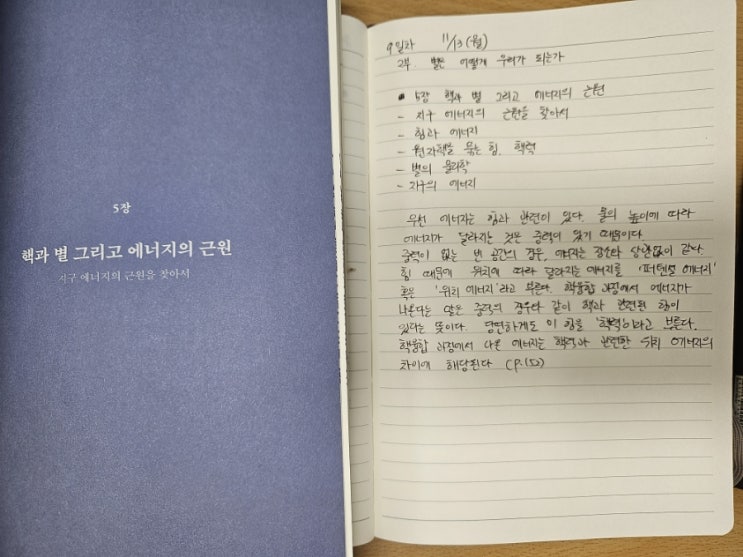 5장
핵과 별 그리고 에너지의 근원
지구 에너지의 근원을 찾아서
9일차 11/13(월)
2부. 별은 어떻게 우리가 되는가
5장 핵과 별 그리고 에너지의 근원
- 지구 에너지의 근원을 찾아서
- 힘과 에너지
- 원자핵을 묶는 힘, 핵력
- 별의 물리학
- 지구의 에너지
우선 에너지는 힘과 관련이 있다. 물의 높이에 따라
에너지가 달라지는 것은 중력이 있기 때문이다.
중력이 없는 빈 공간의 경우, 에너지는 장소와 상관없이 같다.
힘 때문에 위치에 따라 달라지는 에너지를 '퍼텐셜 에너지'
혹은 '위치 에너지'라고 부른다. 핵융합 과정에서 에너지가
나온다는 말은 중력의 경우와 같이 핵과 관련된 힘이
있다는 뜻이다. 당연하게도 이 힘을 '핵력'이라고 부른다.
핵융합 과정에서 나온 에너지는 핵력과 관련한 위치 에너지의
차이에 해당된다 (p.152)